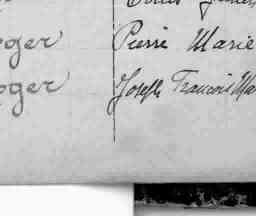 oger Pierre Marie
oger Joseph Francois Ma